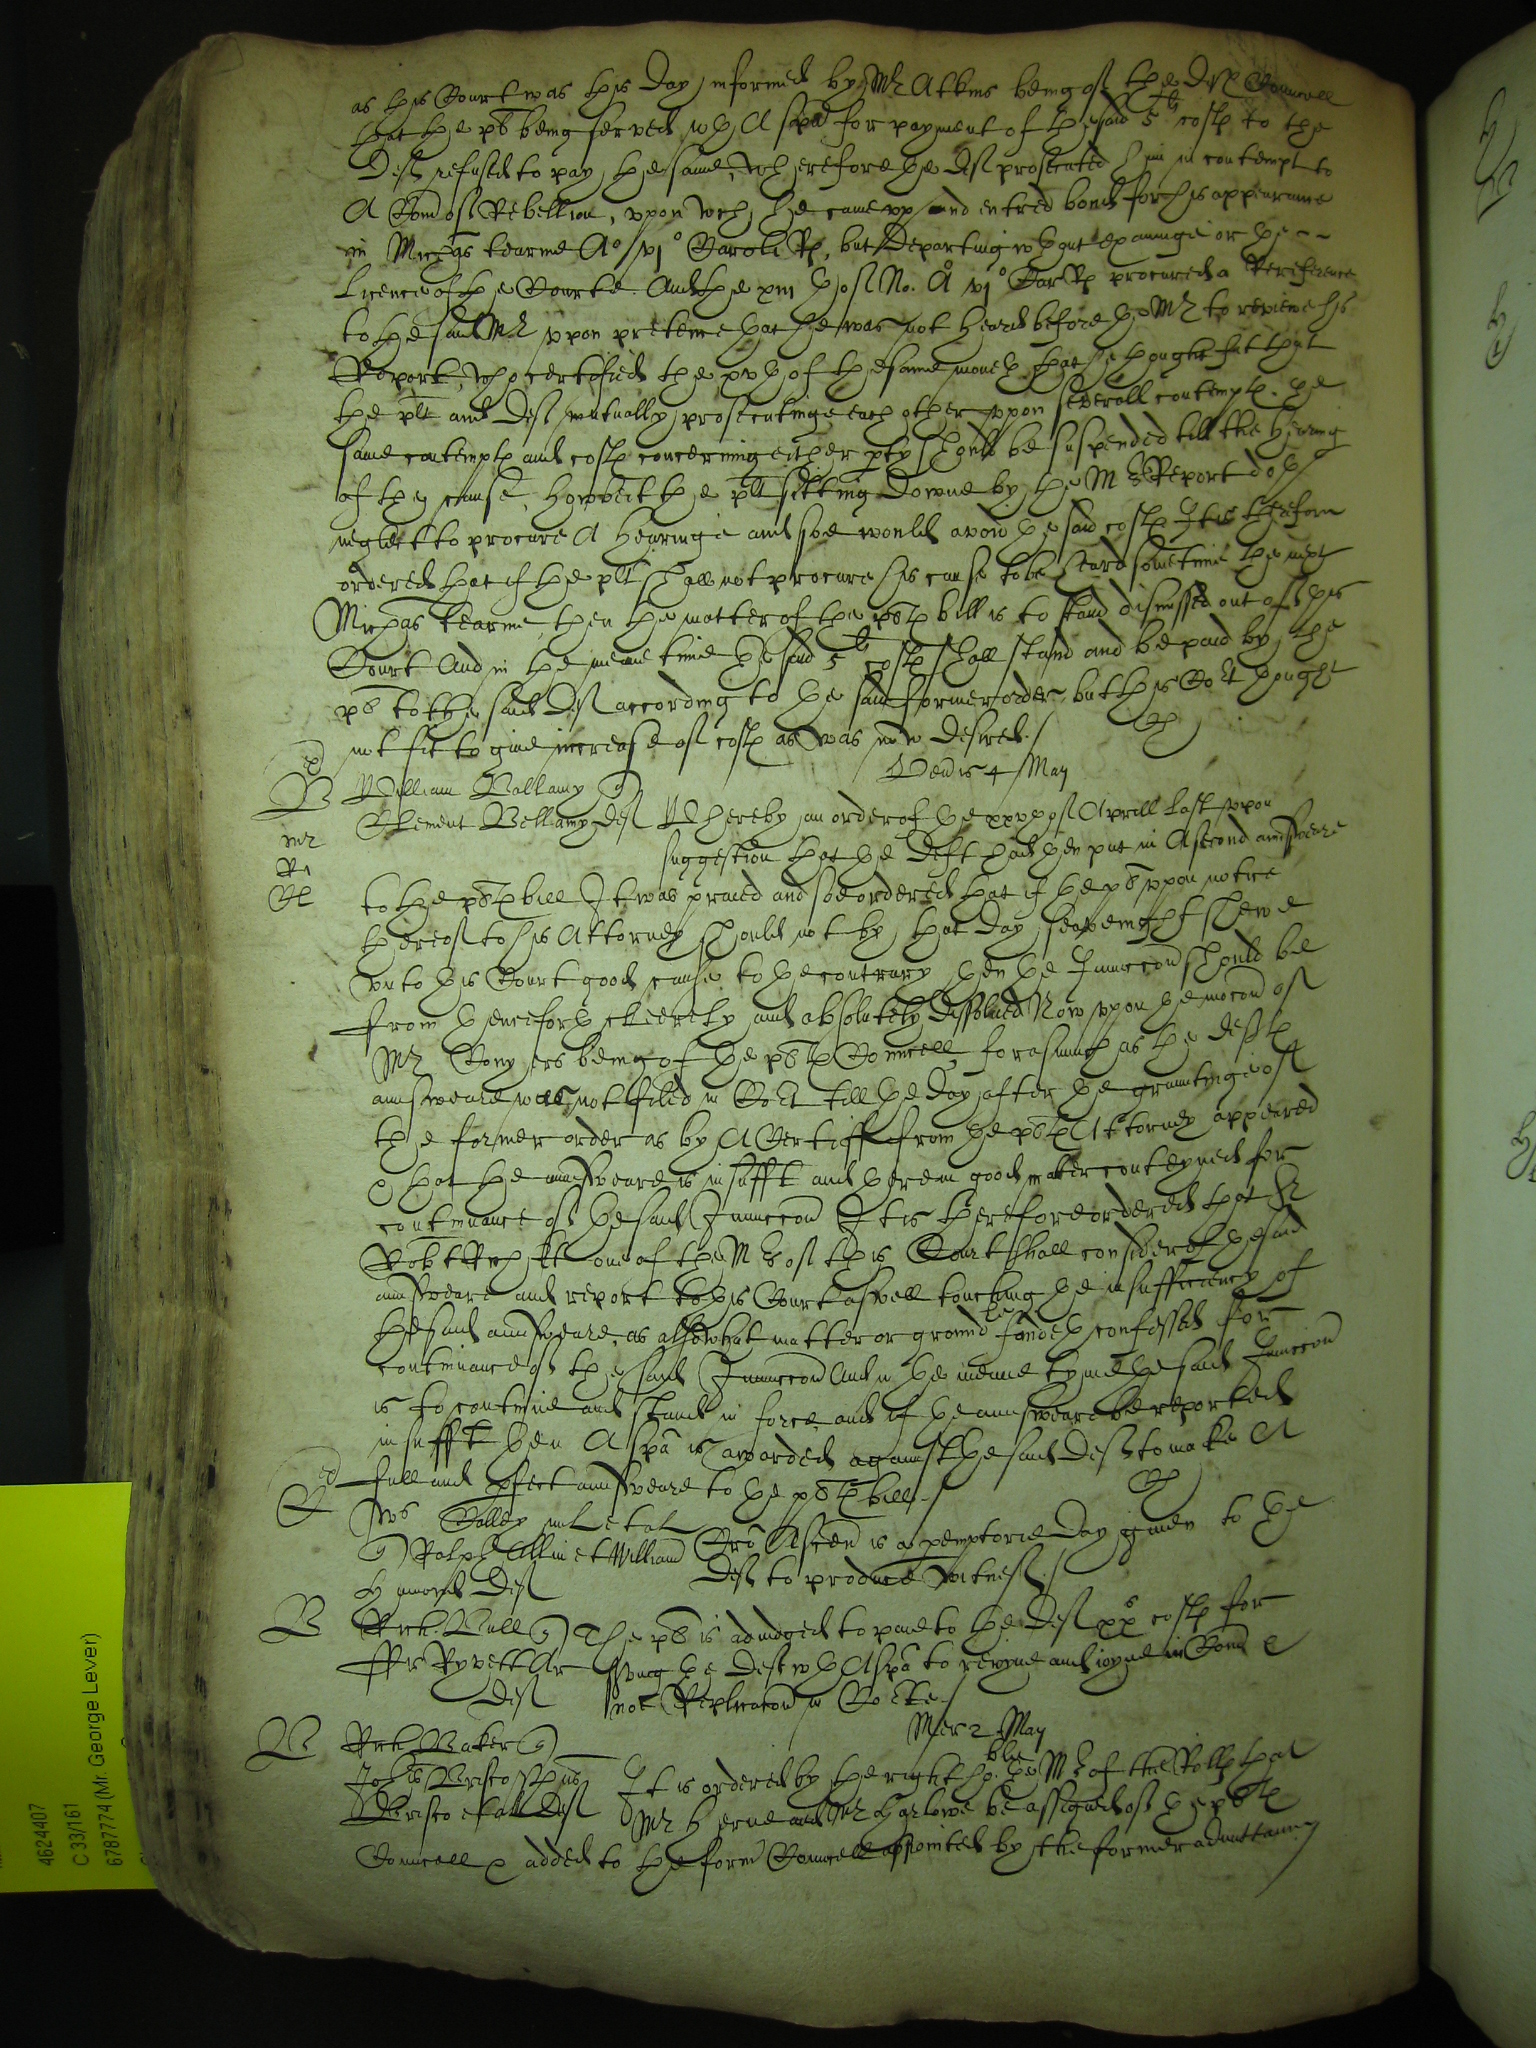 as this Court was this day informed by Mr Atkins being of the deftes Councell
that the plt being served wth A spa for payment of the said 5li costes to the
Deft refused to pay the same, Wherefore the deft prosecuted him in contempt to
A Com of Rebellion, vpon wch he came vpp and entred bond for his appearance
in Michas tearme Ao vjo Caroli Rs, but departing wthout examininge or the
licence of the Courte. And the xiij th of No. Ao vjo Car Rs procured a Reference
to the said Mr vpon pretence that he was not heard before the Mr to reviewe his
Report, who certified the xvth of the same moneth that he thought fitt that
the plt and Deft mutually prosecutinge each other vpon severall contemptes. the
same contemptes and costes concerning either pty should be suspended till the hearing
of the cause, howbeit the plt sitting downe by the Mrs Report doth
neglect to procure A hearinge and soe would avoid the said costes It is therefore
ordered that if the plt shall not procure his cause to be heard sometime the next
Michas tearme, then the matter of the pltes bill is to stand dismissed out of this
Court And in the meane time the said 5li costes shall stand and be paid by the
plt to the said Deft according to the said former order, but this Cort thought
not fit to give increase of costes as was now desired./
Veneris 4 May
B William Bellamy q
Clement Bellamy deft Whereby an order of the xxvth of Aprill last vpon
mr
Ri
Cl
suggestion that the deft had then put in A second answeare
to the pltes bill It was praied and soe ordered that if the plt vpon notice
thereof to his Attorney should not by that day seavenight shewe
vnto this Court good cause to the contrary then the Iniuccon should be
from thenceforth cleerely and absolutely dissolued Now vpon the mocon of
Mr Conyers being of the pltes Councell, forasmuch as the deftes
answeare was not filed in Cort till the day after the grauntinge of
the former order as by A Certiff from the pltes Attorney appeared
& that the answeare is insufft and therein good matter conteyned for
continuance of the said Iniuccon It is therefore ordered that Sr
Robt Rich kt one of the Mrs of this Court shall consider of the said
answeare and report to this Court aswell touching the insufficiency of
the said answeare, as also what matter or ground he findeth confessed for
continuance of the said Iniuccon And in the meane tyme the said Iniuccon
is to continue and stand in force and if the answeare be reported
insufft then A spa is awarded against the said Deft to make A
full and pfect answeare to the pltes bill./
C Ws Colley mil et al
q Ralph Allin et William Cro Ascen is a pemptorie day given to the
Deft Deft to produce Witnes./
B Rich. Bull q The plt is adiudged to paie to the Deft xxs costes for
ffr Ryvett Ar serving the deft wth A spa to reioyne and ioyne in Com &
deft noe Replicacon in Corte./
Mer 2 May
B Rich. Baker q
Johes Briscoe
Briscoe et al Deft It is ordered by the right ho:ble the Mr of the Rolles that
Mr Herne and Mr Harlowe be assigned of the pltes
Councell & added to the form Councell appointed by the former admittance
4624407
C 33/161
6787774 (Mr. George Lever)